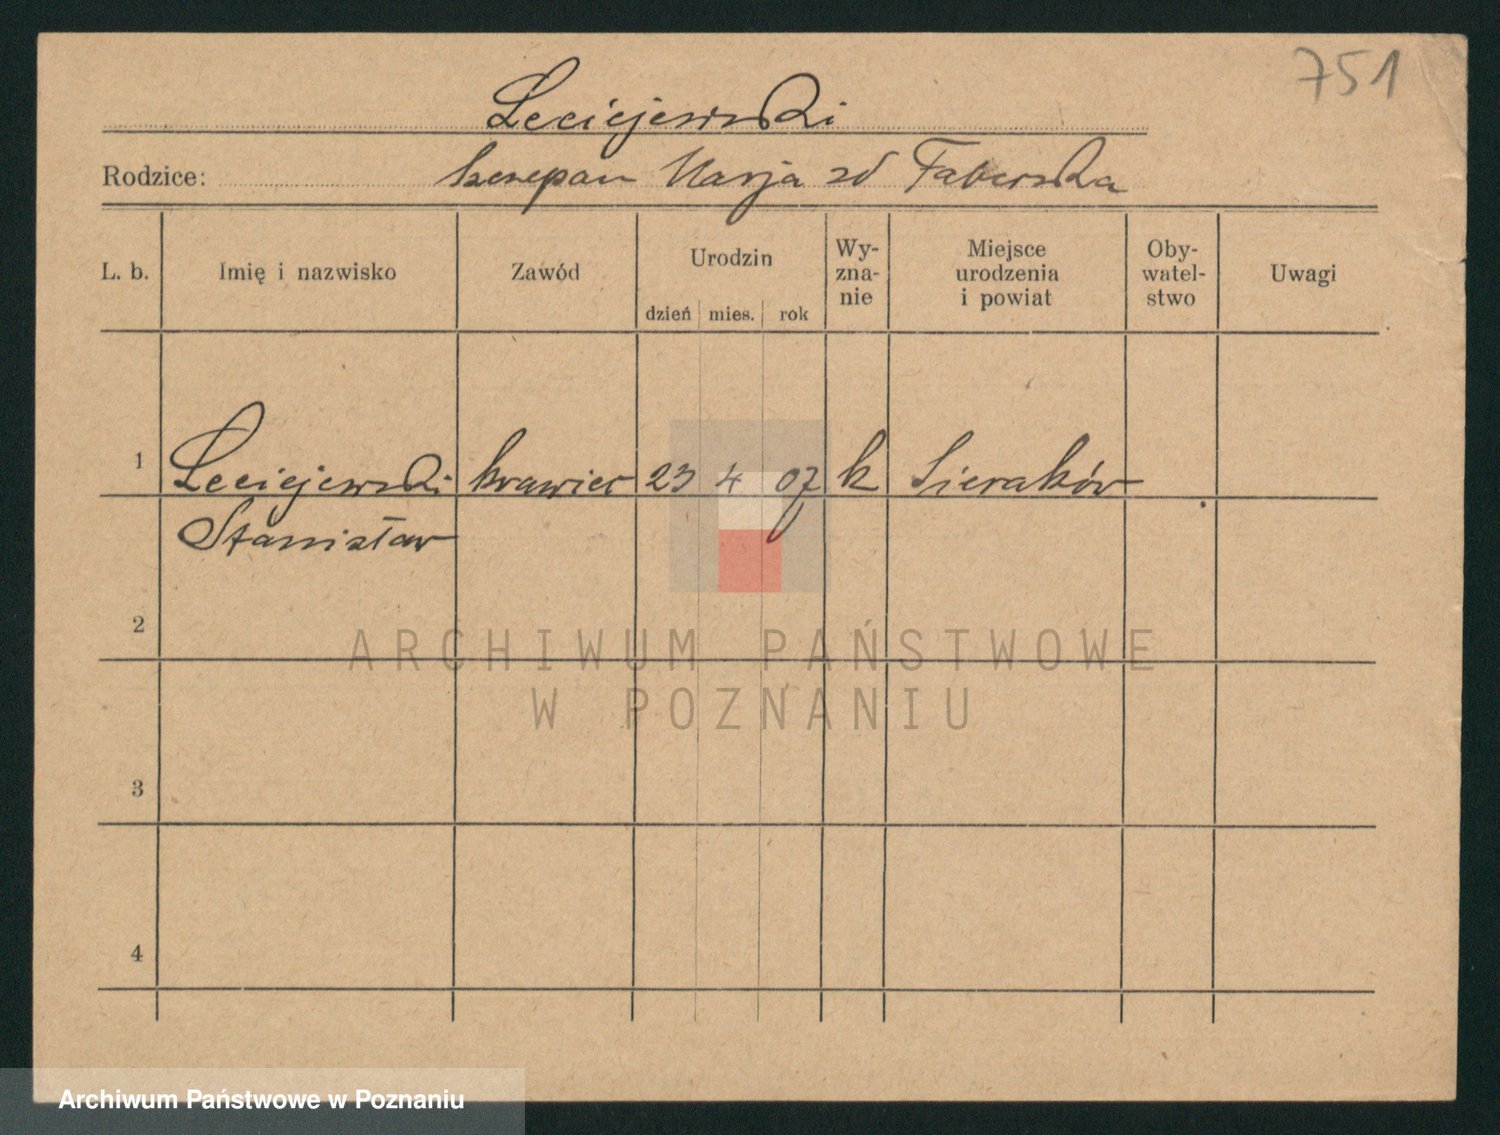 751
Leciejewski
Rodzice: Szczepan Marja zd Faberska
L. b. Imię i nazwisko Zawód Urodzin dzień mies. rok Wy-zna-nie Miejsce urodzenia i powiat Oby-watel-stwo Uwagi
1 Leciejewski krawiec 23 4 07 k Sieraków
Stanisław
2
ARCHIWUM PAŃSTWOWE
W POZNANIU
3
4
Archiwum Państwowe w Poznaniu